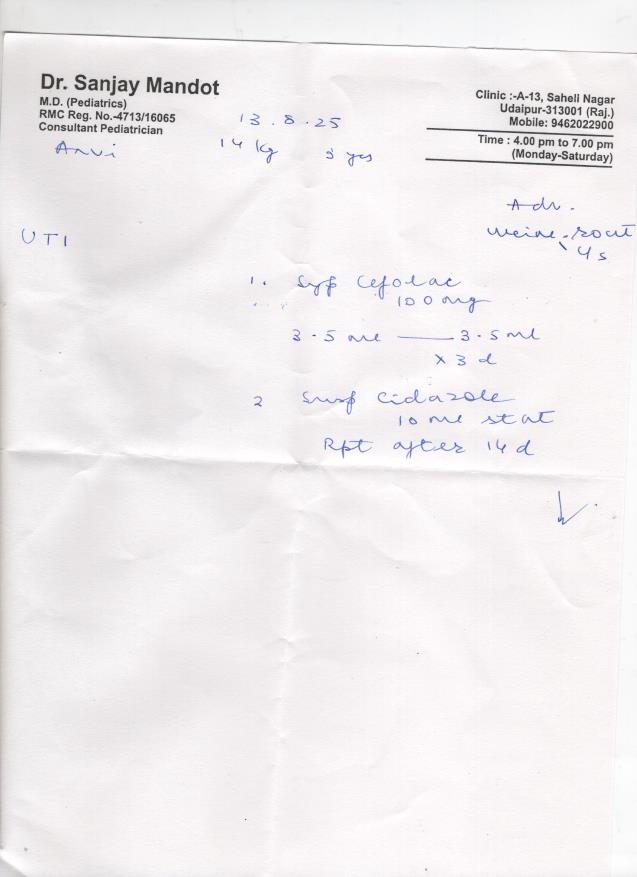 Dr. Sanjay Mandot
M.D. (Pediatrics)
RMC Reg. No.-4713/16065
Consultant Pediatrician
Clinic :-A-13, Saheli Nagar
Udaipur-313001 (Raj.)
Mobile: 9462022900
Time : 4.00 pm to 7.00 pm
(Monday-Saturday)
13.8.25
Anvi 14 kg 3 yrs
Adv.
Urine - rout
UTI
1. Syp Cefolac
100 mg
3.5 ml — 3.5 ml
x 3 d
2 Susp Cidazole
10 ml stat
Rpt after 14 d